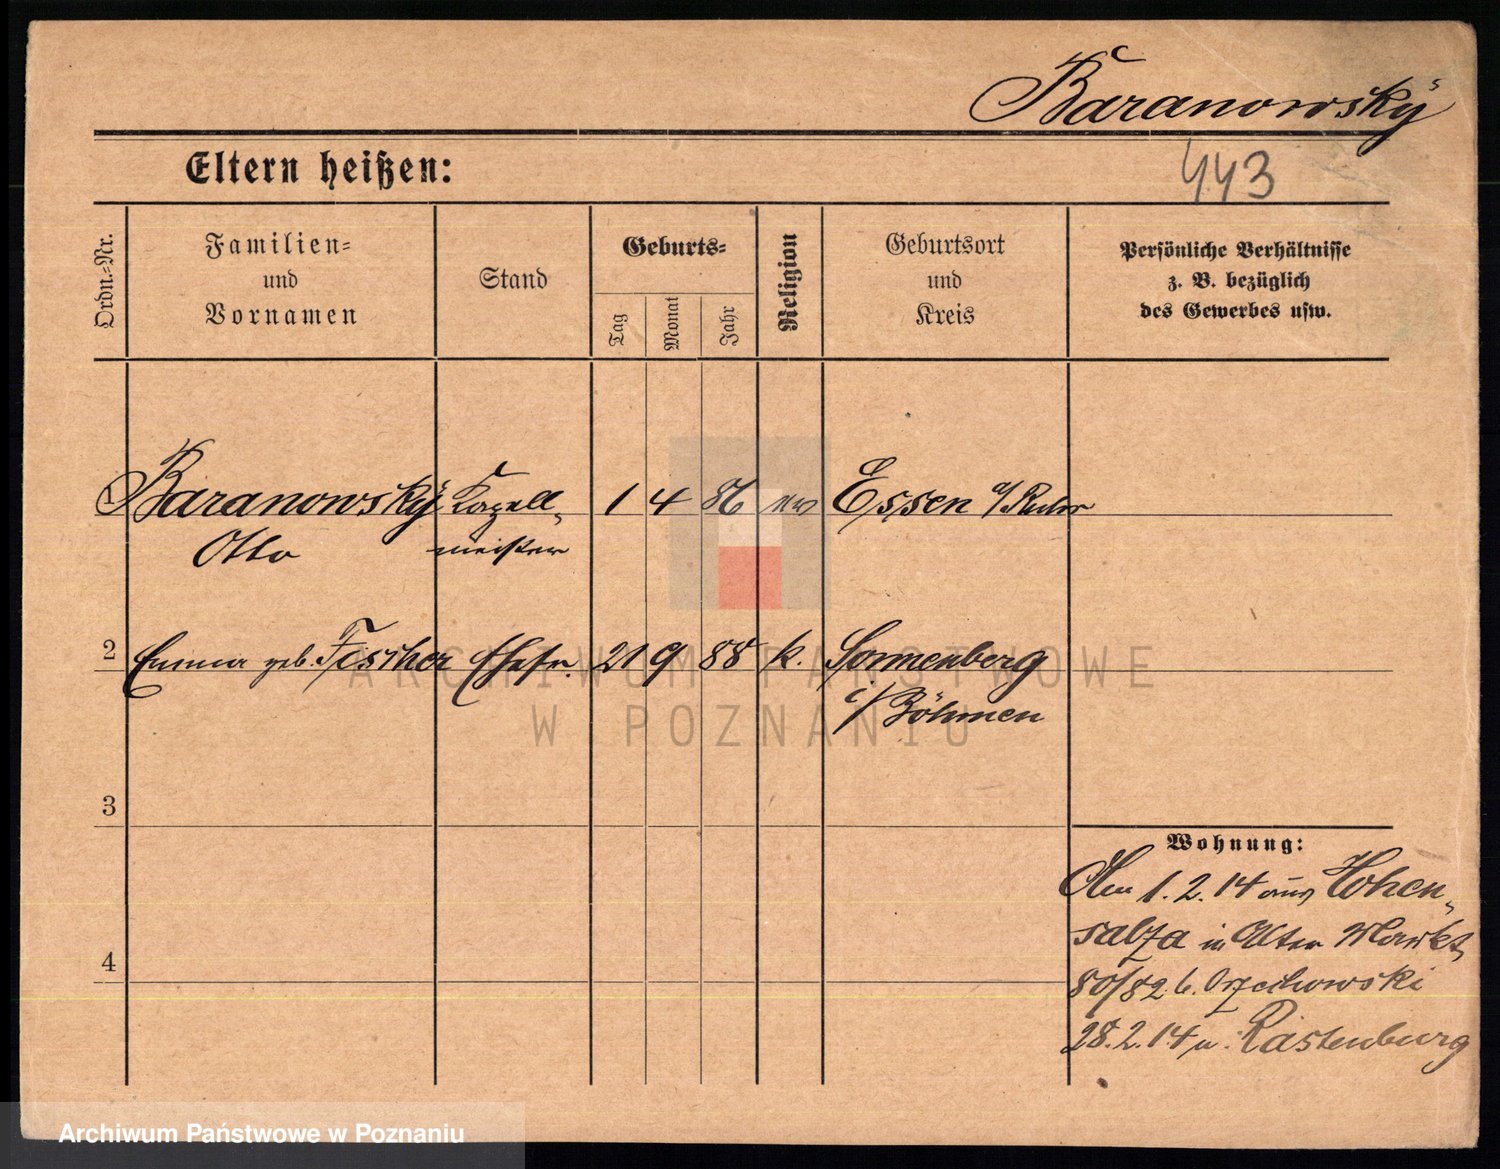 Baranowský
443
Eltern heißen:
Ordn.=Nr.
Familien=
und
Vornamen
Stand
Geburts=
Tag
Monat
Jahr
Religion
Geburtsort
und
Kreis
Persönliche Verhältnisse
z. B. bezüglich
des Gewerbes usw.
1 Baranowský Kapell- 1 4 86 ev Essen a/Ruhr
Otto meister
2 Emma geb. Fischer Ehefr. 21 9 88 k. Sonnenberg
i/Böhmen
3
4
Wohnung:
Am 1.2.14 aus Hohen-
salza in Alter Markt
80/82 b. Orzechowski
28.2.14 n. Rastenburg
ARCHIWUM PAŃSTWOWE
W POZNANIU
Archiwum Państwowe w Poznaniu